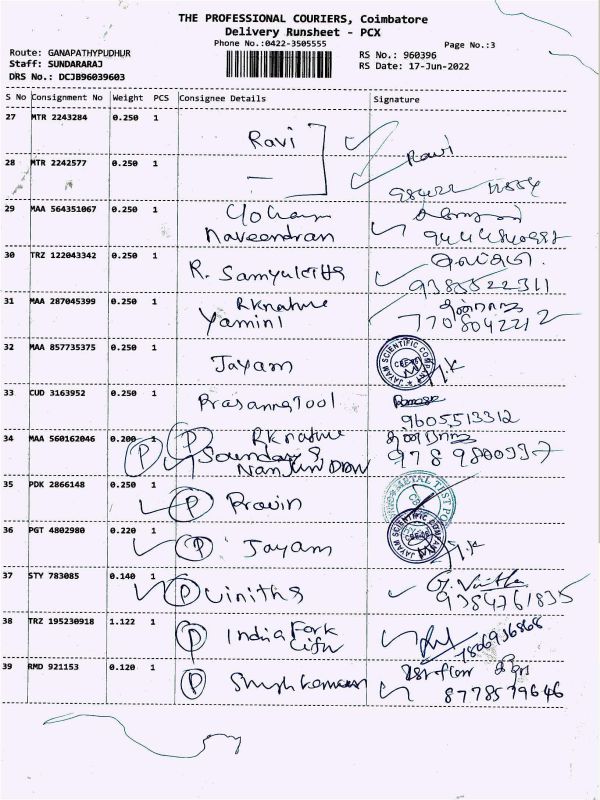 THE PROFESSIONAL COURIERS, Coimbatore
Delivery Runsheet - PCX
Phone No.:0422-3505555
Page No.:3
Route: GANAPATHYPUDHUR
RS No.: 960396
Staff: SUNDARARAJ
RS Date: 17-Jun-2022
DRS No.: DCJB96039603
S No Consignment No Weight PCS Consignee Details Signature
27 MTR 2243284 0.250 1 Ravi
28 MTR 2242577 0.250 1 — Ravi
29 MAA 564351067 0.250 1
Naveendran
30 TRZ 122043342 0.250 1
R. Samyuktha 9385522311
31 MAA 287045399 0.250 1 RKnature
Yamini 7708042212
32 MAA 857735375 0.250 1
Jayam JAYAM SCIENTIFIC COMPANY CBE-
33 CUD 3163952 0.250 1
Prasanna Tool 9605513312
34 MAA 560162046 0.200 1 P P RKnature
35 PDK 2866148 0.250 1 METAL TEST
P Pravin
36 PGT 4802980 0.220 1 JAYAM SCIENTIFIC COMPANY
P Jayam
37 STY 783085 0.140 1
P Vinitha 9384761835
38 TRZ 195230918 1.122 1
P India Fork 7806936868
39 RMD 921153 0.120 1
P 8778579646